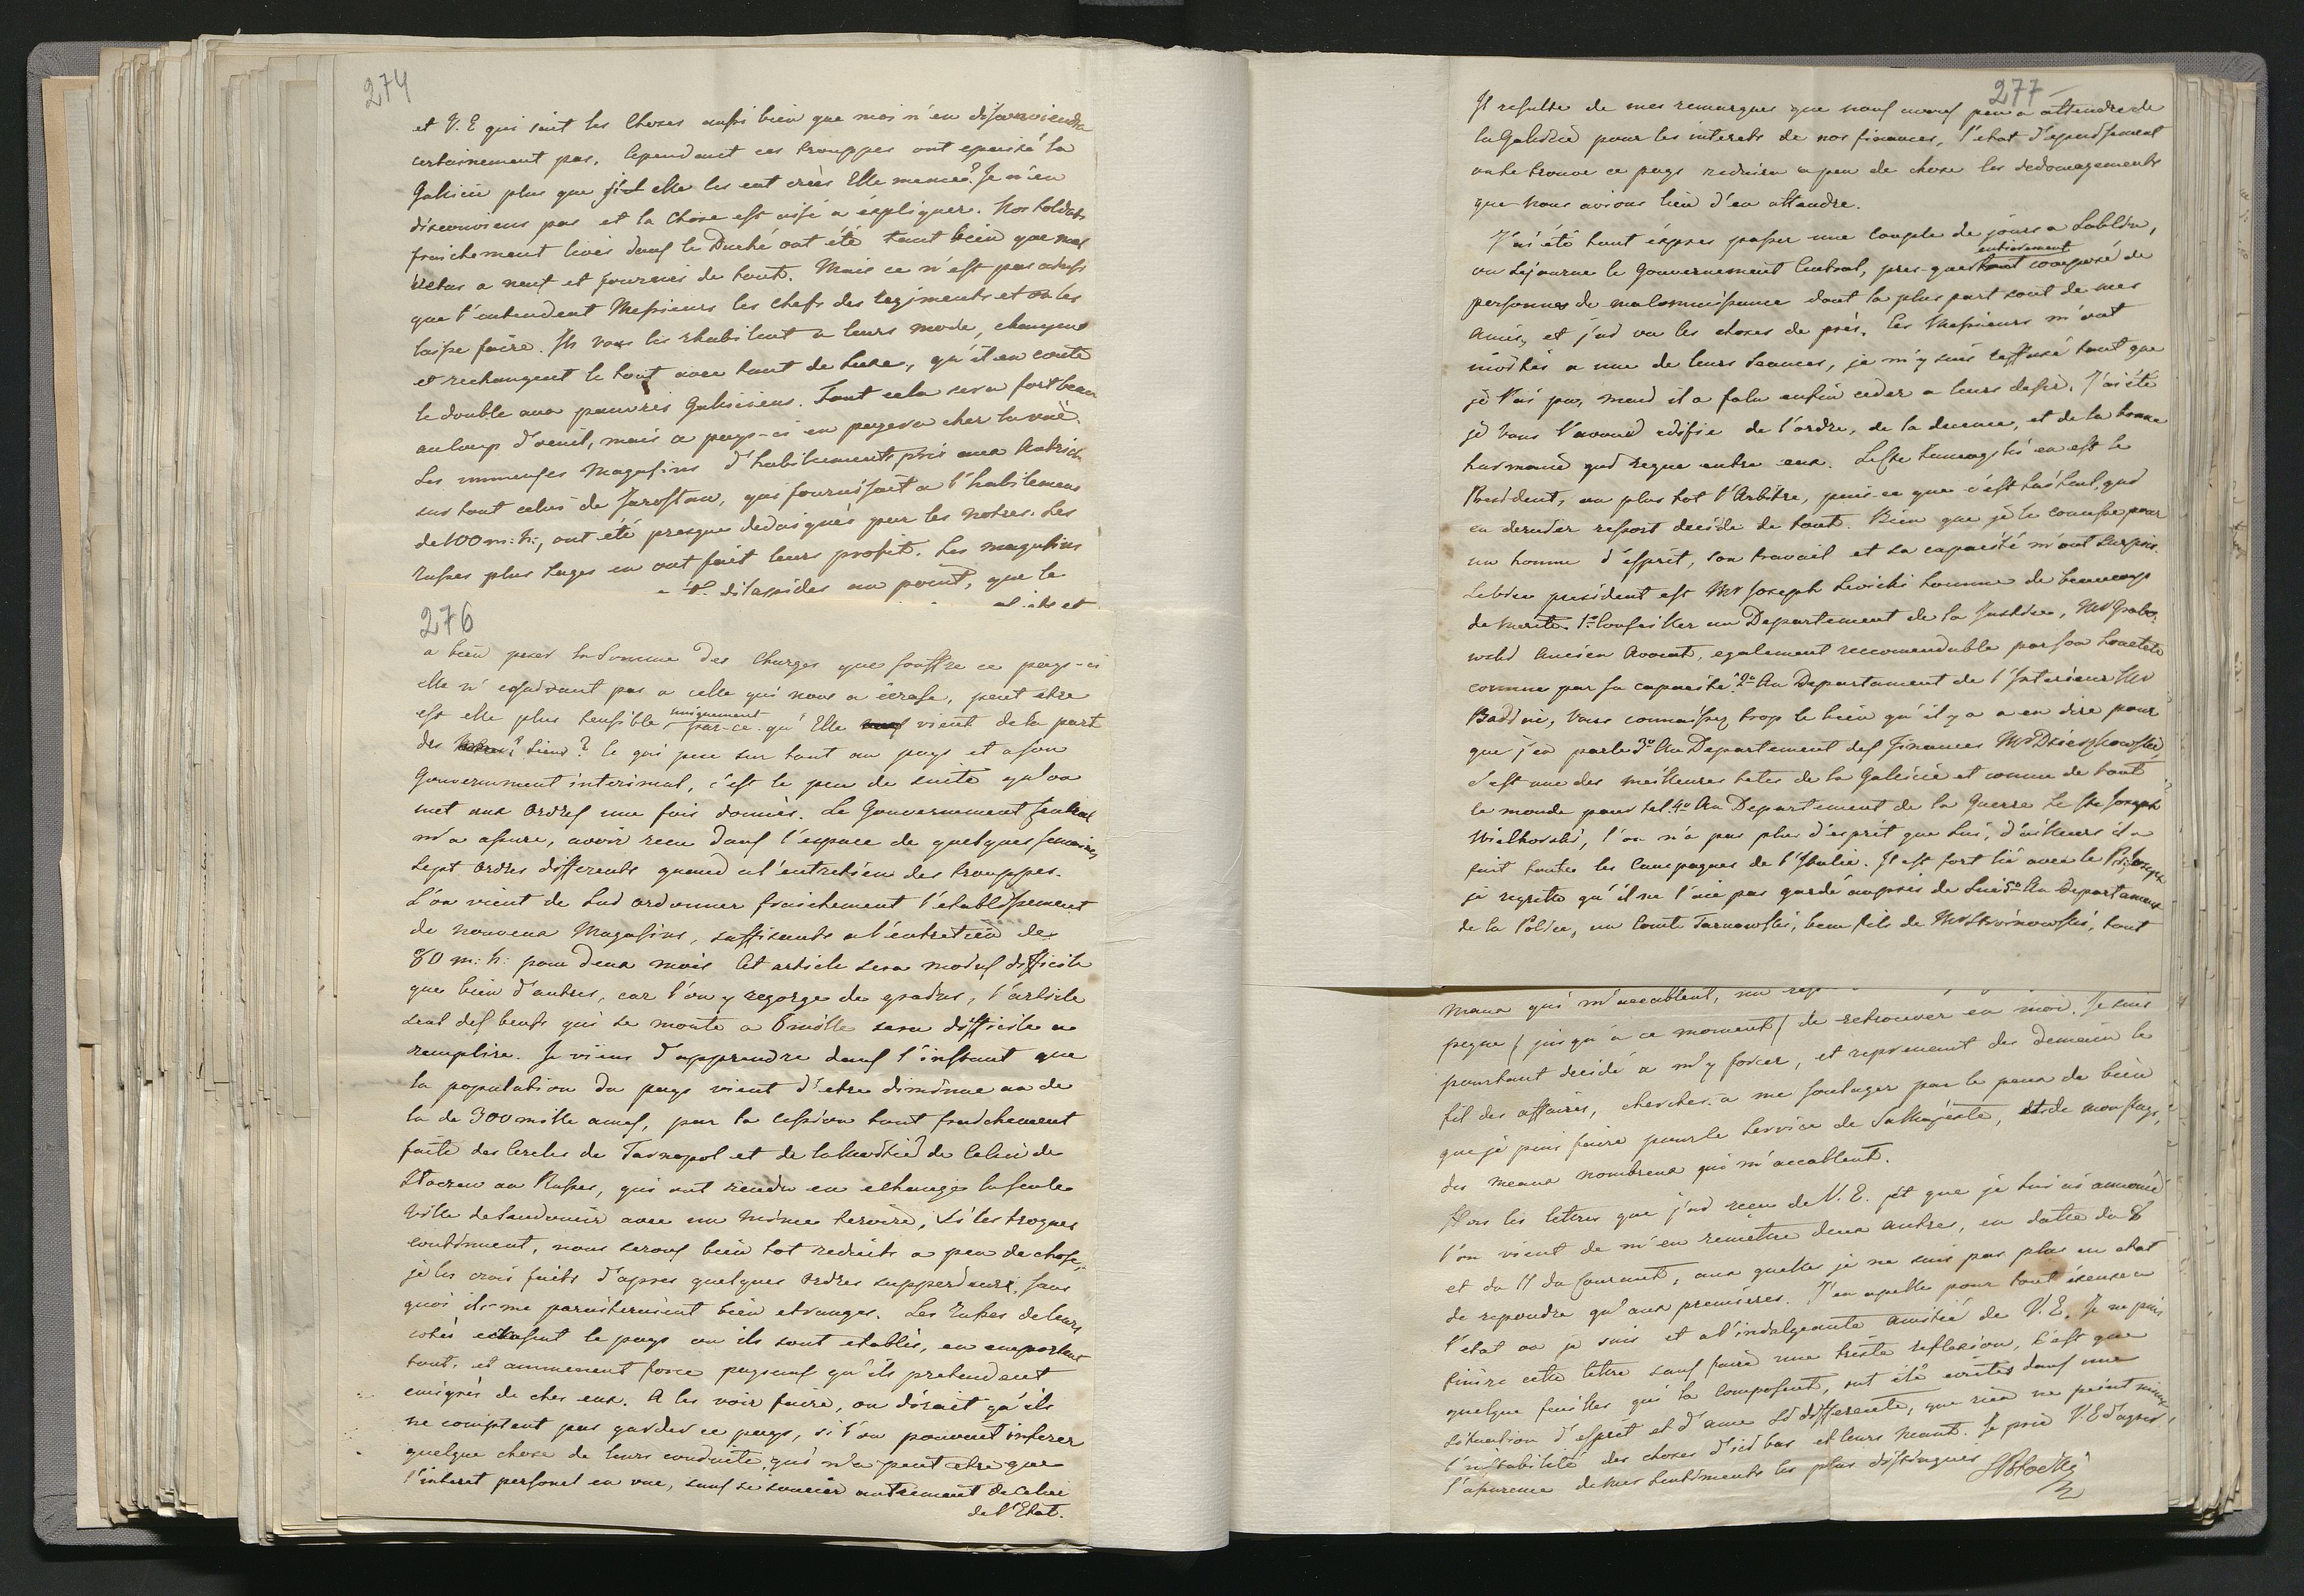 274
et V. E qui sait les choses aussi bien que moi n'en disconviendra
certainement pas. Cependant ces trouppes ont epuisé la
Galicie plus que si elle les eut creès Elle meme? Je n'en
disconviens pas et la chose est aisé a expliquer. Nos soldats
fraichement livès dans le Duché ont été tant bien que mal
vetus a neuf et fournis de tout. Mais ce n'est pas ainsi
que l'entendent Messieurs les chefs des regiments et on les
laisse faire. Ils vous les rhabilent a leurs mode, changent
et rechangent le tout avec tant de luxe, qu'il en coute
le double aux pauvres Galiciens. Tout cela sera fort beau
au coup d'oeuil, mais ce pays-ci en payera cher la vuë.
Les immenses Magasins d'habilements pris aux Autrich
sur tout celui de Jaroslau, qui fournissait a l'habilemens
de 100 m: h:, ont été presque dedaignès par les notres. Les
Russes plus sages en ont fait leurs profit. Les magasins
dilapidès au point, que le
et
276
a bien peser la Somme des charges que souffre ce pays-ci
elle n'equivaut pas a celle qui nous a écrasé, peut etre
est elle plus sensible, uniquement par-ce qu'Elle vient de la part
des siens? Ce qui pese sur tout au pays et a son
Gouvernement interimal, c'est le peu de suite qu'on
met aux ordres une fois donnès. Le Gouvernement Central
m'a assuré, avoir recu dans l'espace de quelques semaines
sept ordres differents quand a l'entretien des trouppes.
L'on vient de lui ordonner fraichement l'etablissement
de nouveaux Magasins, suffisants a l'entretien de
80 m: h: pour deux mois Cet article sera moins difficile
que bien d'autres, car l'on y regorge de grains, l'article
seul des beufs qui se monte a 6 mille sera difficile a
remplire. Je viens d'apprendre dans l'instant que
la population du pays vient d'etre diminue au de
la de 300 mille ames, par la cession tout fraichement
faite des Cercles de Tarnopol et de la moitié de celui de
Zloczow au Russes, qui ont rendu en echange la seule
Ville de Sandomir avec un mince teroire, si les troques
continuent, nous serons bien tot reduits a peu de chose,
je les crois faits d'apres quelques ordres supperieurs, sans
quoi ils me paraiteraient bien etranges. Les Russes de leurs
cotés ecrasent le pays ou ils sont etablis, en emportent
tout, et ammenent force paysans qu'ils pretendent
emigrès de ches eux. A les voir faire, on dirait qu'ils
ne comptent pas garder ce pays, si l'on pouvait inferer
quelque chose de leurs conduite, qui n'a peut etre que
l'interet personel en vue, sans se soucier autrement de celui
de l'Etat.
277
Il resulte de mes remarques que nous avons peu a attendre de
la Galicie pour les interets de nos finances, l'etat d'epuisement
ou se trouve ce pays reduira a peu de chose les dedomagements
que nous avions lieu d'en attendre.
J'ai été tout éxpres passer une couple de jours a Lublin,
ou sejourne le Gouvernement Central, pres-que entierement composé de
personnes de ma connaissance dont la plus part sont de mes
Amis, et j'ai vu les choses de près. Ces Messieurs m'ont
invités a une de leurs seances, je m'y suis reffusé tant que
je l'ai pu, mais il a falu enfin ceder a leurs desir. J'ai été
je vous l'avoue edifie de l'ordre, de la decence, et de la bonne
harmonie qui regne entre eux. Le Cte Zamoyski en est le
President, ou plus tot l'Arbitre, puis-ce que c'est lui seul, qui
en dernier ressort decide de tout. Bien que je le connusse pour
un homme d'esprit, son travail et sa capacité m'ont surpris.
Le vice president est Mr Joseph homme de beaucoup
de merite. 1º Conseiller au Departement de la Justice, Mr Grabo-
wski Ancien Avocat, egalement recomendable par son honeteté
comme par sa capacité. 2º Au Departament de l'Interieur Mr
Badeni, Vous connaissez trop le bien qu'il y a a en dire pour
que j'en parle 3º Au Departement des Finances Mr Dzierzkowski,
c'est une des meilleures tetes de la Galicie et connu de tout
le monde pour tel. 4º Au Departement de la Guerre Le Cte Joseph
Wielhorski, l'on n'a pas plus d'esprit que lui, d'ailleurs il a
fait toutes les Campagnes de l'Italie. Il est fort lié avec le Pr: Joseph
je regrette qu'il ne l'aie pas gardé auprès de Lui 5º Au Departament
de la Police, un Comte Tarnowski, beau fils de Mr tout
maux qui m'accablent, un
peyne (jusqu'à ce moment) de retrouver en moi. Je suis
pourtant decidé a m'y forcer, et reprenant des demain le
fil des affaires, chercher a me soulager par le peux de bien
que je puis faire pour le Service de Sa Majesté, et de mon pays,
des meaux nombreux qui m'accablent.
Hors les lettres que j'ai reçu de V. E. et que je lui ai annoncé
l'on vient de m'en remettre deux autres, en datte du 8
et du 11 du Courant, aux quelle je ne suis pas plus en etat
de repondre qu'aux premieres. J'en apelle pour tout éxcuse a
l'etat ou je suis et a l'indulgeante amitié de V. E. Je ne puis
finire cette lettre sans faire une triste reflexion, c'est que
quelque feuilles qui la composent, ont été ecrites dans une
situation d'esprit et d'ame si differente, que rien ne peint mieux
l'instabilité des choses d'ici bas et leurs neant. Je prie V. E d'agreer
l'assurence de mes sentiments les plus distinguès